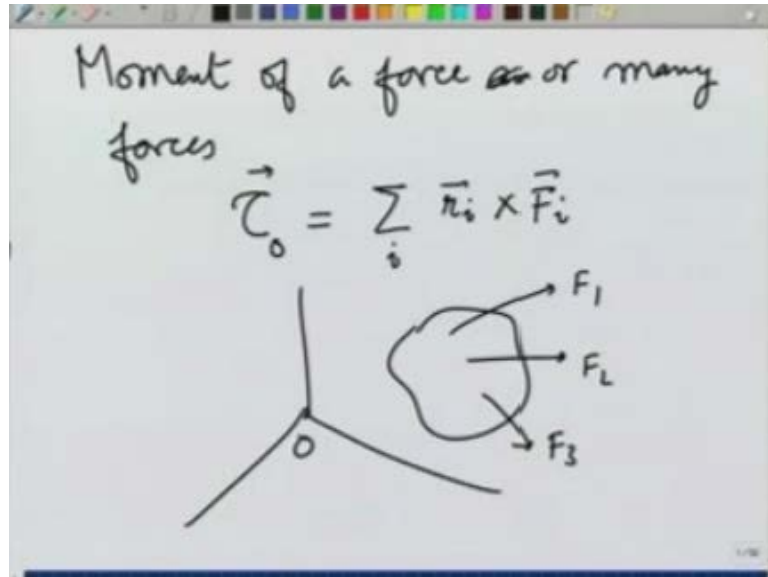 Moment of a force or many
forces
τ⃗₀ = Σᵢ r⃗ᵢ × F⃗ᵢ
F₁
F₂
F₃
O